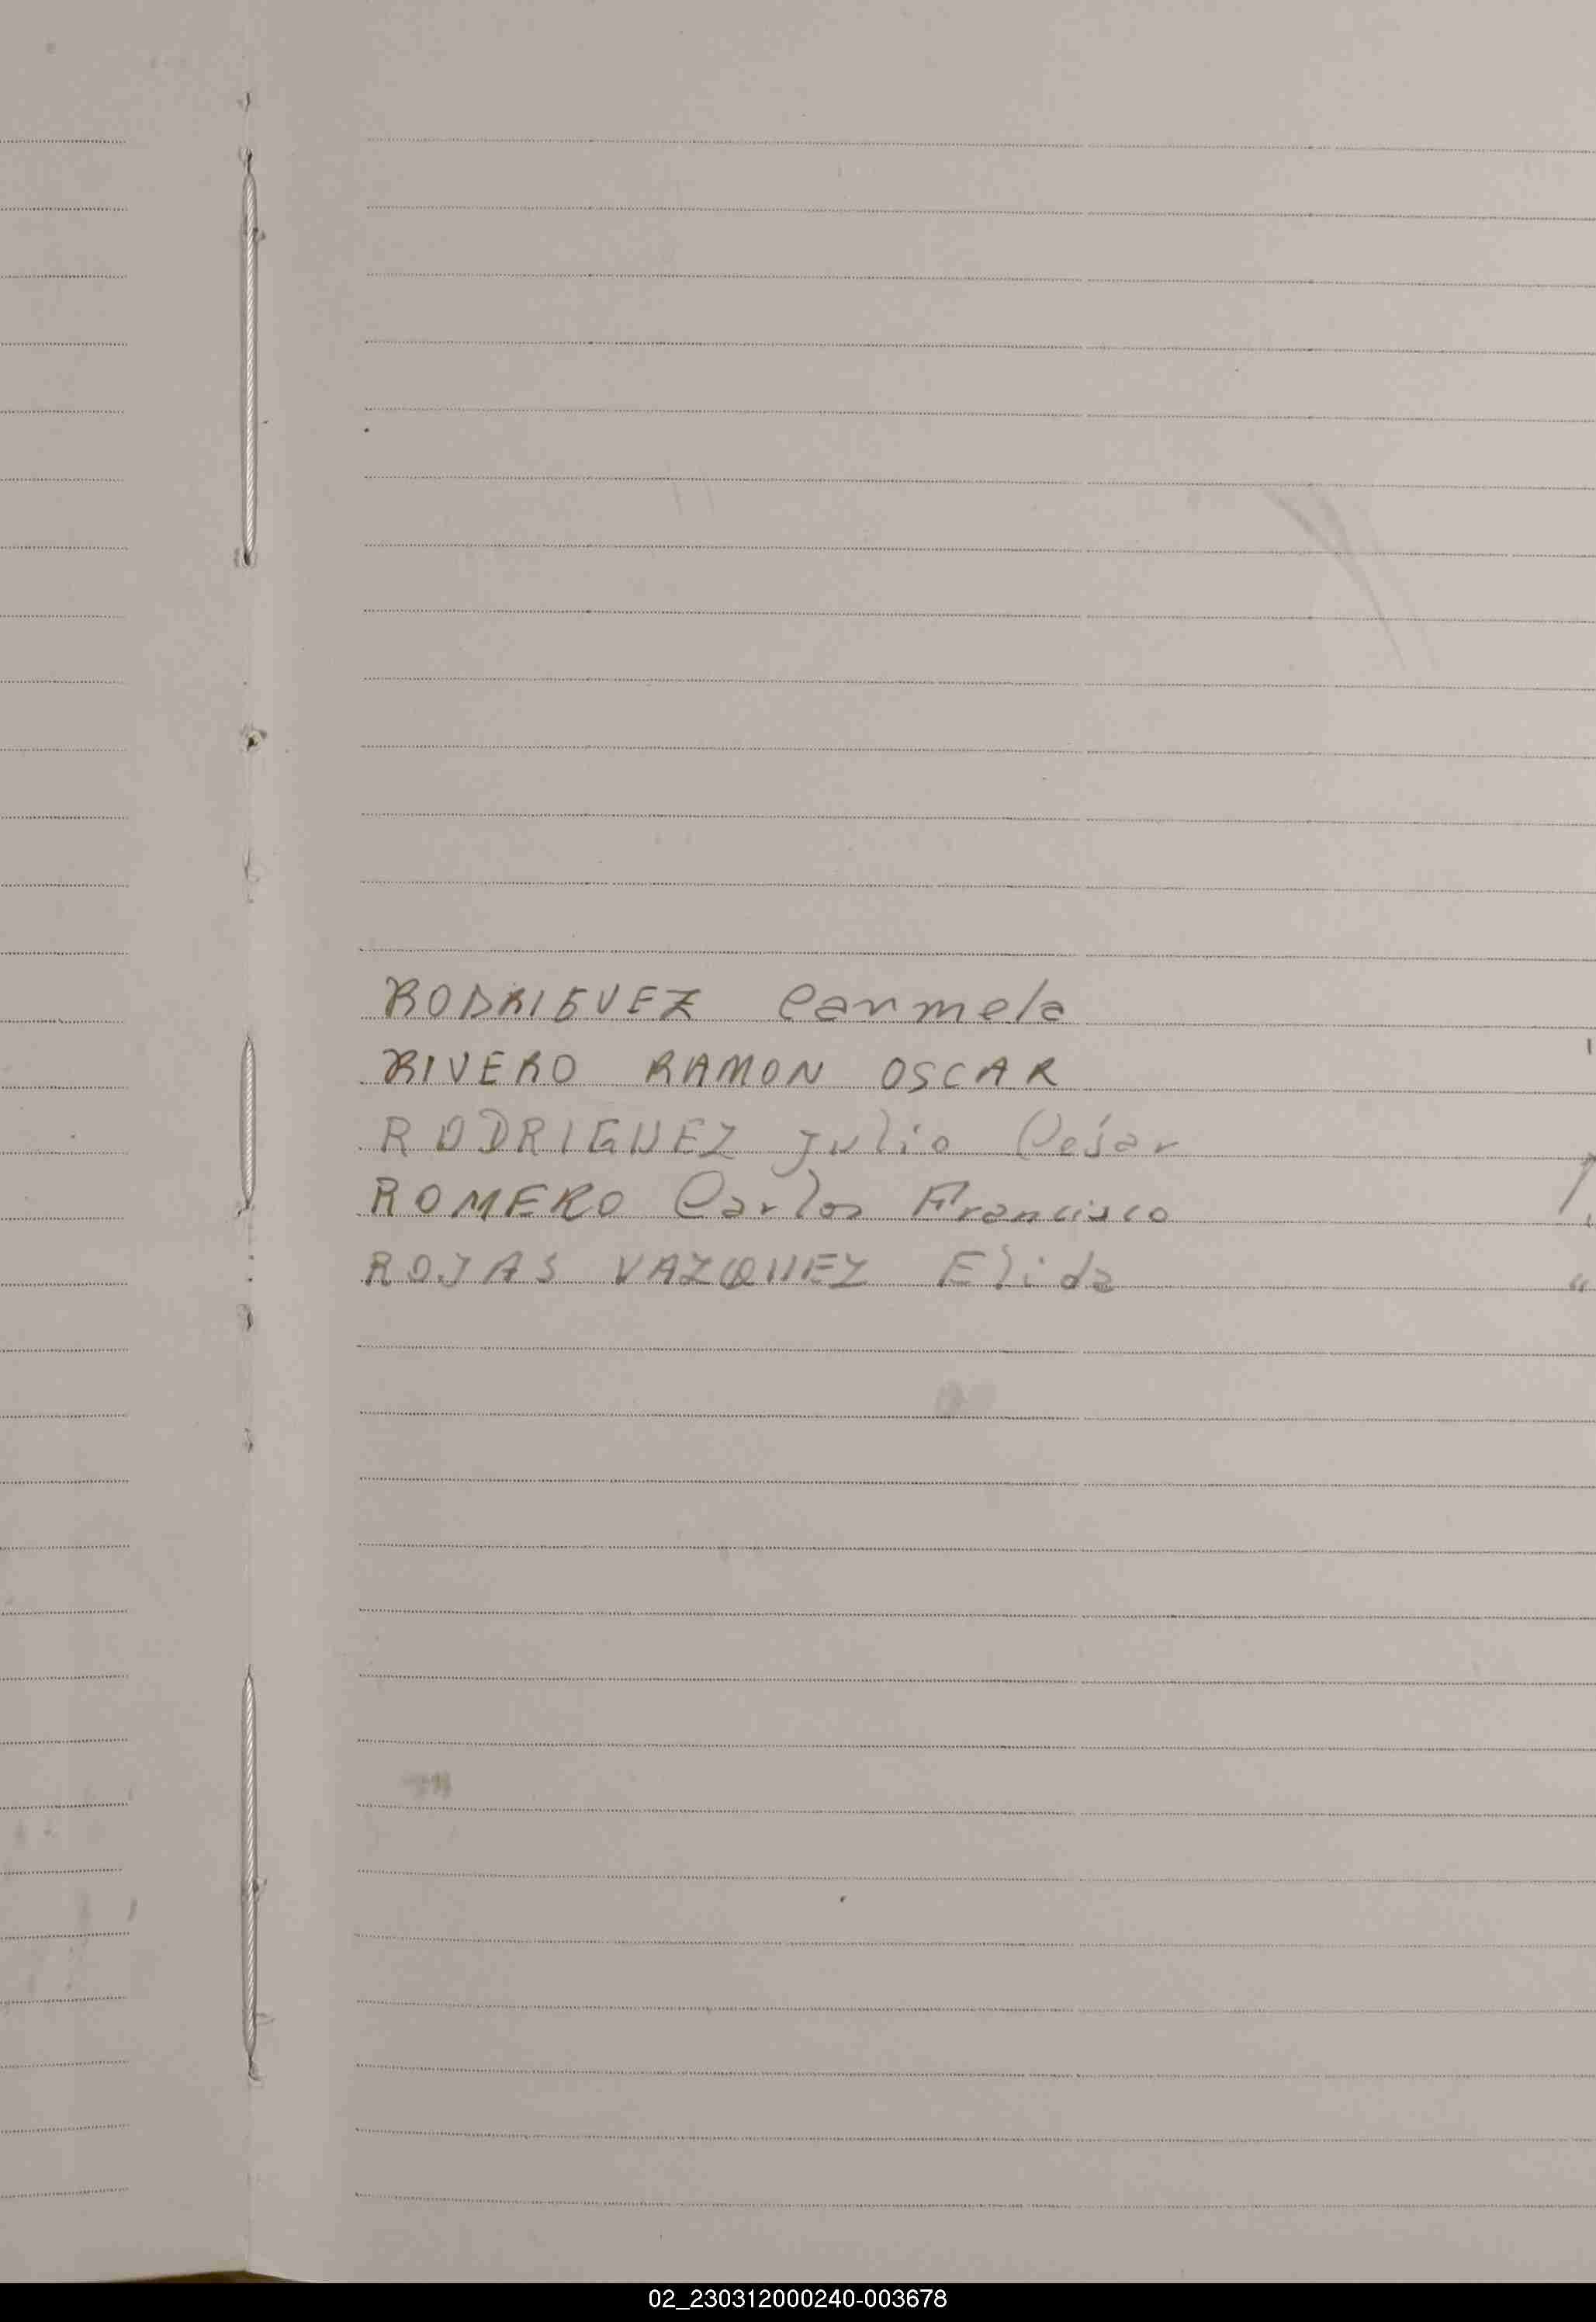 RODRIGUEZ Carmela
RIVERO RAMON OSCAR
RODRIGUEZ Julio César
ROMERO Carlos Francisco
ROJAS VAZQUEZ Elida
"
02_230312000240-003678